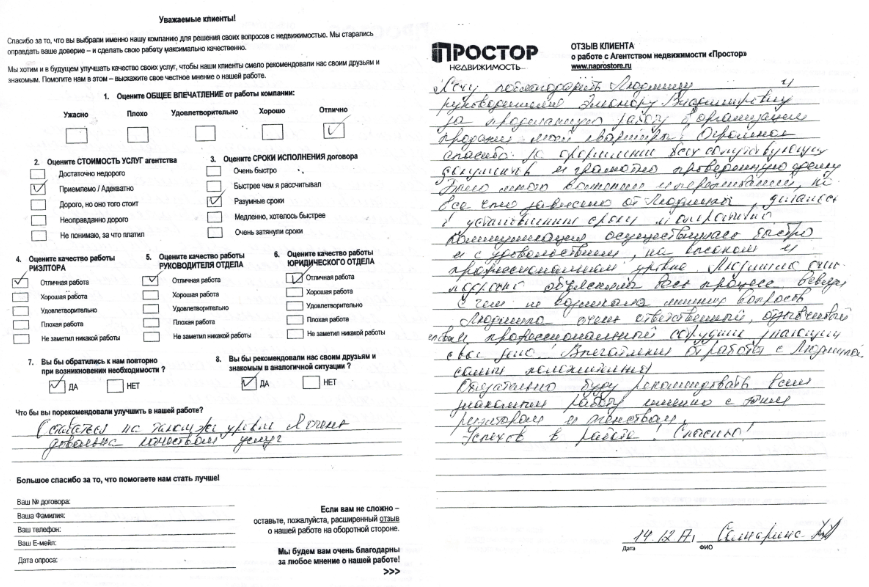 Уважаемые клиенты!
Спасибо за то, что вы выбрали именно нашу компанию для решения своих вопросов с недвижимостью. Мы старались
оправдать ваше доверие – и сделать свою работу максимально качественно.
Мы хотим и в будущем улучшать качество своих услуг, чтобы наши клиенты смело рекомендовали нас своим друзьям и
знакомым. Помогите нам в этом – выскажите свое честное мнение о нашей работе.
1. Оцените ОБЩЕЕ ВПЕЧАТЛЕНИЕ от работы компании:
Ужасно Плохо Удовлетворительно Хорошо Отлично
2. Оцените СТОИМОСТЬ УСЛУГ агентства
Достаточно недорого
Приемлемо / Адекватно
Дорого, но оно того стоит
Неоправданно дорого
Не понимаю, за что платил
3. Оцените СРОКИ ИСПОЛНЕНИЯ договора
Очень быстро
Быстрее чем я рассчитывал
Разумные сроки
Медленно, хотелось быстрее
Очень затянули сроки
4. Оцените качество работы
РИЭЛТОРА
Отличная работа
Хорошая работа
Удовлетворительно
Плохая работа
Не заметил никакой работы
5. Оцените качество работы
РУКОВОДИТЕЛЯ ОТДЕЛА
Отличная работа
Хорошая работа
Удовлетворительно
Плохая работа
Не заметил никакой работы
6. Оцените качество работы
ЮРИДИЧЕСКОГО ОТДЕЛА
Отличная работа
Хорошая работа
Удовлетворительно
Плохая работа
Не заметил никакой работы
7. Вы бы обратились к нам повторно
при возникновении необходимости ?
ДА НЕТ
8. Вы бы рекомендовали нас своим друзьям и
знакомым в аналогичной ситуации ?
ДА НЕТ
Что бы вы порекомендовали улучшить в нашей работе?
Оставаться на таком же уровне Я очень
довольна качеством услуг
Большое спасибо за то, что помогаете нам стать лучше!
Ваш № договора:
Ваша Фамилия:
Ваш телефон:
Ваш Е-мейл:
Дата опроса:
Если вам не сложно –
оставьте, пожалуйста, расширенный отзыв
о нашей работе на оборотной стороне.
Мы будем вам очень благодарны
за любое мнение о нашей работе!
>>>
ПРОСТОР
НЕДВИЖИМОСТЬ
ОТЗЫВ КЛИЕНТА
о работе с Агентством недвижимости «Простор»
www.naprostore.ru
Хочу поблагодарить Людмилу и
руководителя Элеонору Владимировну
за проделанную работу в организации
продажи моей квартиры. Огромное
спасибо за оформление всех сопутствующих
документов и грамотно проверенную сделку
все что зависело от Людмилы, делалось
в установленные сроки и оперативно
Коммуникация осуществлялась быстро
и с удовольствием, на высоком и
профессиональном уровне Людмила очень
объясняла весь процесс
с чем не возникало лишних вопросов
Людмила очень ответственный отзывчивый
профессиональный сотрудник знающий
свое дело! Впечатления от работы с Людмилой
самые положительные
Обязательно буду рекомендовать всем
знакомым работу именно с этим
риэлтором и агентством.
Успехов в работе! Спасибо!
14 12 17г.
Дата ФИО